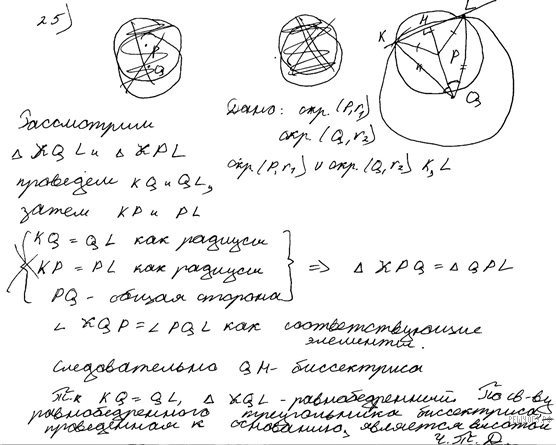 25)
P
Q
K
H
L
P
Q
Дано: окр. (P, r₁)
окр. (Q, r₂)
окр (P, r₁) ∪ окр. (Q, r₂) K, L
Рассмотрим
△ KQL и △ KPL
проведем KQ и QL,
затем KP и PL
KQ = QL как радиусы
KP = PL как радиусы
PQ - общая сторона
⇒ △ KPQ = △ QPL
∠ KQP = ∠ PQL как соответствующие
элементы.
Следовательно QH - биссектриса
Т.к KQ = QL, △ KQL - равнобедренный. По св-ву
равнобедренного треугольника биссектриса,
проведенная к основанию, является высотой
Ч.Т.Д.